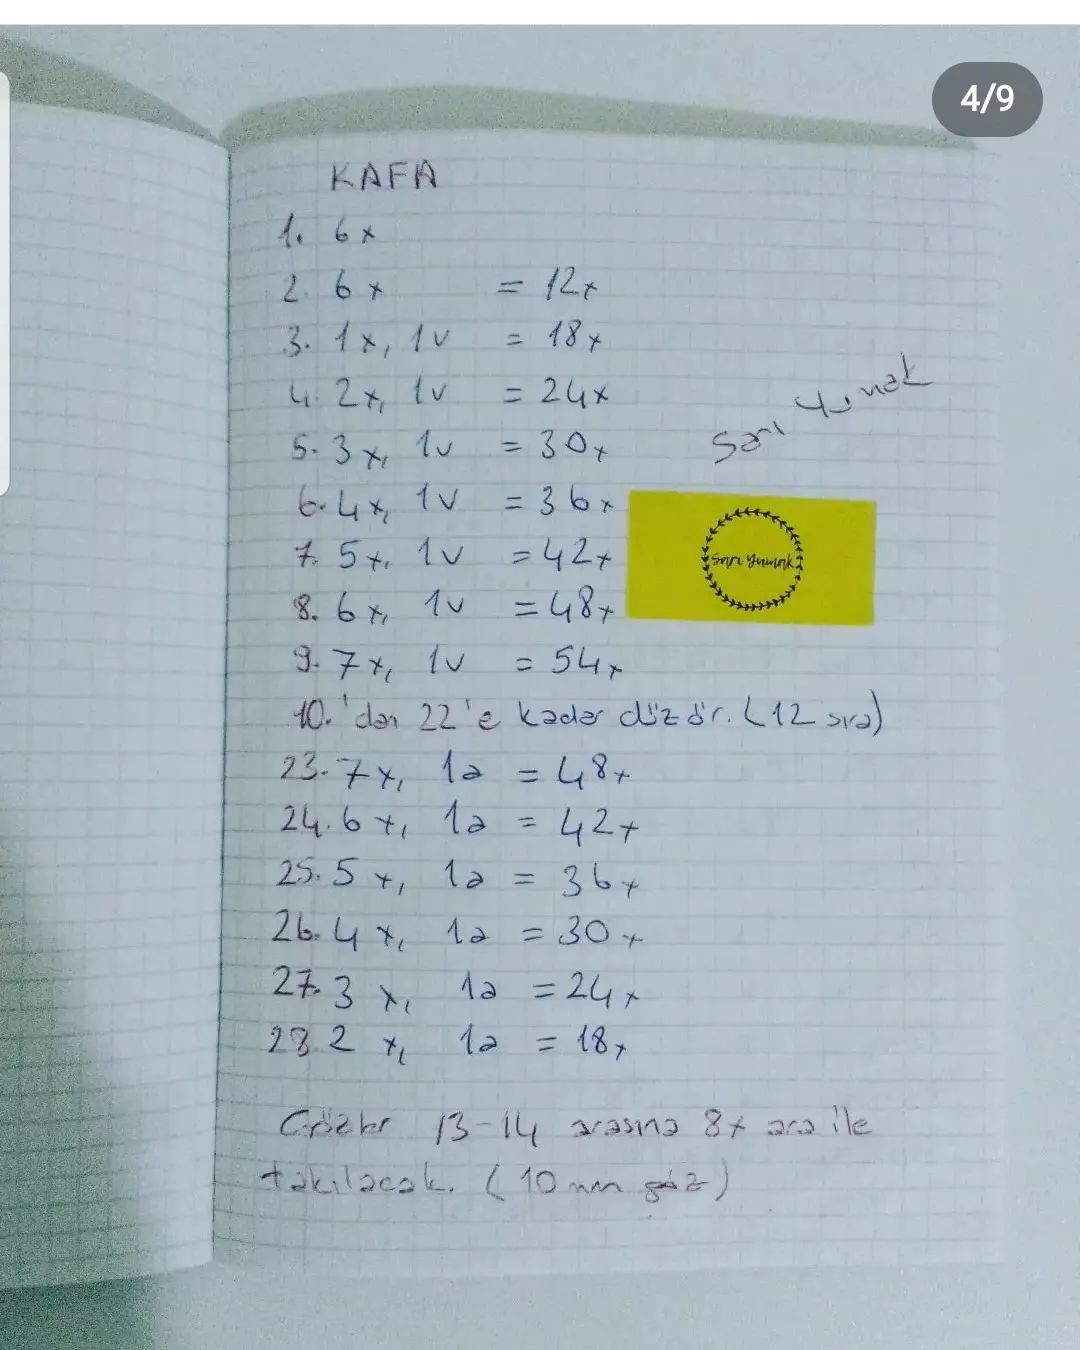 4/9
KAFA
1. 6x
2. 6x = 12x
3. 1x, 1v = 18x
4. 2x, 1v = 24x
5. 3x, 1v = 30x
Sarı Yumak
6. 4x, 1v = 36x
7. 5x, 1v = 42x
Sarı Yumak
8. 6x, 1v = 48x
9. 7x, 1v = 54x
10.'dan 22'e kadar düz ör. (12 sıra)
23. 7x, 1a = 48x
24. 6x, 1a = 42x
25. 5x, 1a = 36x
26. 4x, 1a = 30x
27. 3x, 1a = 24x
28. 2x, 1a = 18x
Gözler 13-14 arasına 8x ara ile
takılacak. (10 mm göz)